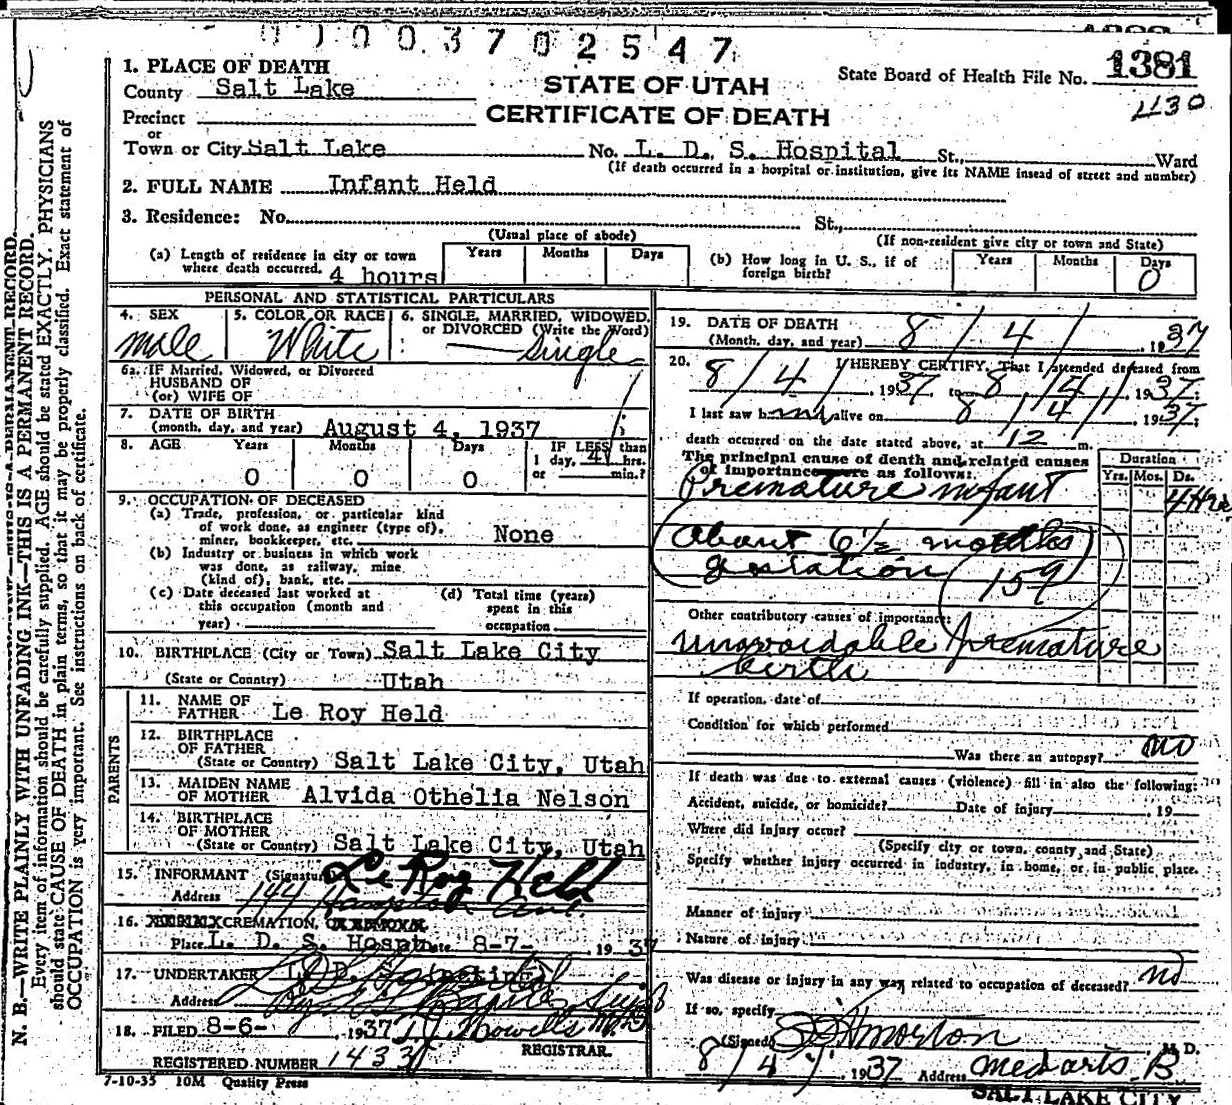 0 1 0 0 3 7 0 2 5 4 7
1. PLACE OF DEATH
County Salt Lake
STATE OF UTAH
CERTIFICATE OF DEATH
State Board of Health File No. 1381
430
Precinct
or
Town or City Salt Lake No. L. D. S. Hospital St., Ward
(If death occurred in a hospital or institution, give its NAME insead of street and number)
2. FULL NAME Infant Held
3. Residence: No. St.,
(Usual place of abode) (If non-resident give city or town and State)
(a) Length of residence in city or town where death occurred. 4 hours Years Months Days
(b) How long in U. S., if of foreign birth? Years Months Days 0
PERSONAL AND STATISTICAL PARTICULARS
4. SEX male
5. COLOR OR RACE White
6. SINGLE, MARRIED, WIDOWED, or DIVORCED (Write the Word) Single
6a. IF Married, Widowed, or Divorced
HUSBAND OF
(or) WIFE OF
7. DATE OF BIRTH
(month, day, and year) August 4, 1937
8. AGE Years 0 Months 0 Days 0 IF LESS than 1 day, 4 hrs. or min.?
9. OCCUPATION OF DECEASED
(a) Trade, profession, or particular kind
of work done, as engineer (type of),
miner, bookkeeper, etc. None
(b) Industry or business in which work
was done, as railway, mine
(kind of), bank, etc.
(c) Date deceased last worked at
this occupation (month and
year)
(d) Total time (years)
spent in this
occupation
10. BIRTHPLACE (City or Town) Salt Lake City
(State or Country) Utah
PARENTS
11. NAME OF
FATHER Le Roy Held
12. BIRTHPLACE
OF FATHER
(State or Country) Salt Lake City, Utah
13. MAIDEN NAME
OF MOTHER Alvida Othelia Nelson
14. BIRTHPLACE
OF MOTHER
(State or Country) Salt Lake City, Utah
15. INFORMANT (Signature) Le Roy Held
Address 144 Hampton Ave.
16. CREMATION,
Place L. D. S. Hosp Date 8-7- 1937
17. UNDERTAKER L. D. S.
Address
18. FILED 8-6- 1937 T. J. Howells M.D.
REGISTRAR.
REGISTERED NUMBER 1433
7-10-35 10M Quality Press
19. DATE OF DEATH
(Month, day, and year) 8 / 4 / 1937
20. I HEREBY CERTIFY, That I attended deceased from
8 / 4 / 1937 to 8 / 4 / 1937;
I last saw him alive on 8 / 4 1937;
death occurred on the date stated above, at 12 m.
The principal cause of death and related causes
of importance were as follows:
Duration
Yrs. Mos. Ds.
Premature infant 4 Hrs
about 6 1/2 months
gestation 159
Other contributory causes of importance:
Unavoidable premature
birth
If operation, date of
Condition for which performed
Was there an autopsy? no
If death was due to external causes (violence) fill in also the following:
Accident, suicide, or homicide? Date of injury , 19
Where did injury occur?
(Specify city or town, county, and State)
Specify whether injury occurred in industry, in home, or in public place.
Manner of injury
Nature of injury
Was disease or injury in any way related to occupation of deceased? no
If so, specify
(Signed) Morton M. D.
8 / 4 / 1937 Address Med arts B
SALT LAKE CITY
N. B.—WRITE PLAINLY WITH UNFADING INK—THIS IS A PERMANENT RECORD.
Every item of information should be carefully supplied. AGE should be stated EXACTLY. PHYSICIANS
should state CAUSE OF DEATH in plain terms, so that it may be properly classified. Exact statement of
OCCUPATION is very important. See instructions on back of certificate.